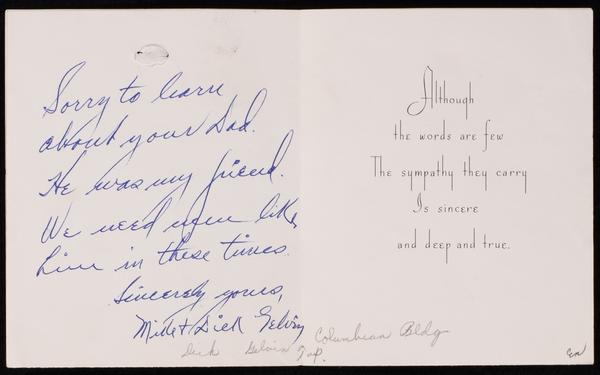 Sorry to learn
about your Dad.
He was my friend.
We need men like
him in these times.
Sincerely yours,
Mitt & Dick Gelvin
Dick Gelvin Top.
Columbian Bldg
Although
the words are few
The sympathy they carry
Is sincere
and deep and true.